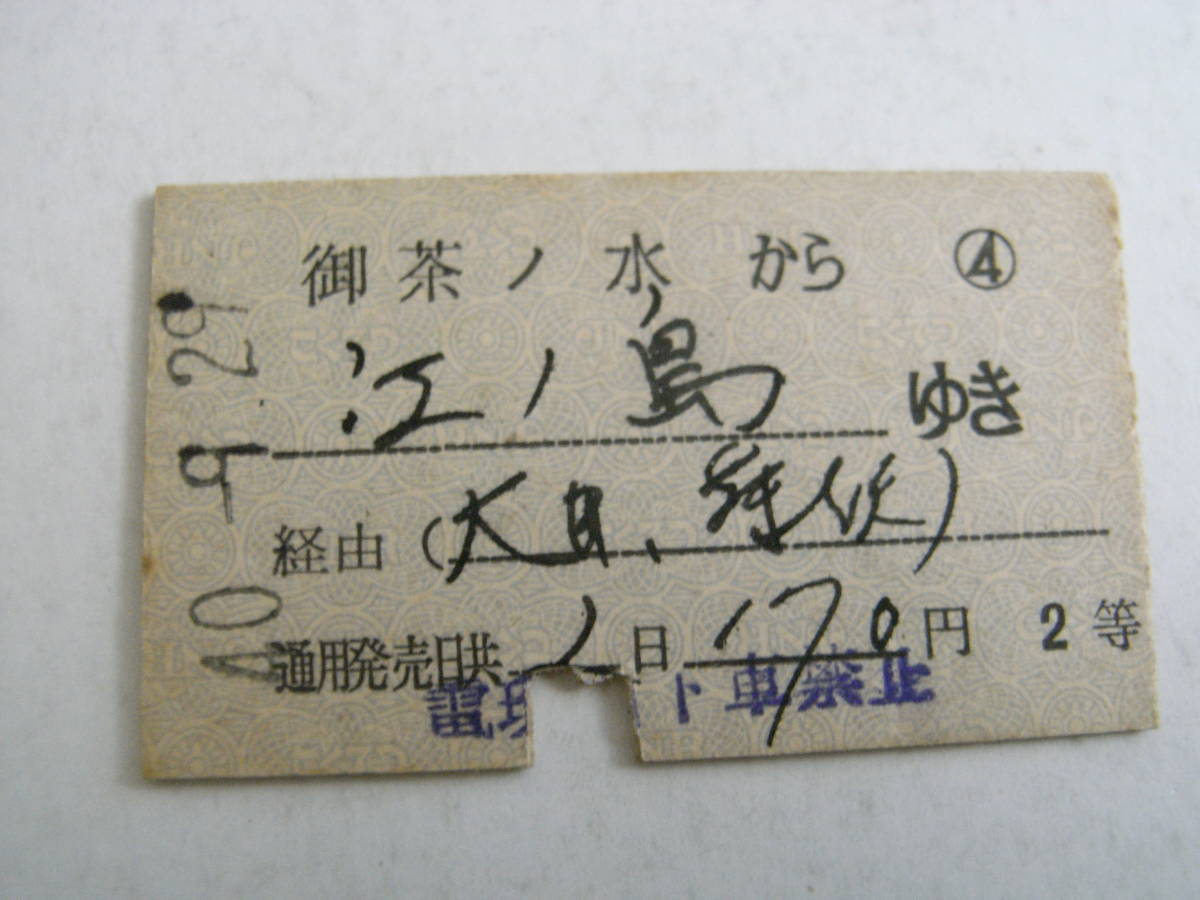 御茶ノ水 から ④
江ノ島 ゆき
経由（大船、
通用発売日共 2 日 170 円 2等
下車禁止
40.-9.29